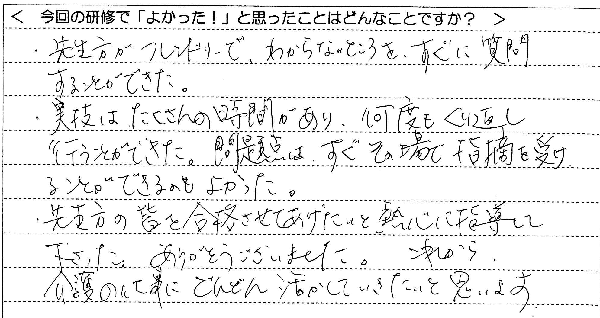 ＜ 今回の研修で「よかった！」と思ったことはどんなことですか？ ＞
・先生方がフレンドリーで、わからないところを、すぐに質問
することができた。
・実技はたくさんの時間があり、何度もくり返し
行うことができた。問題点は、すぐその場で指摘を受け
ることができるのもよかった。
・先生方の皆を合格させてあげたいと熱心に指導して
下さった。ありがとうございました。これから、
介護の仕事にどんどん活かしていきたいと思います